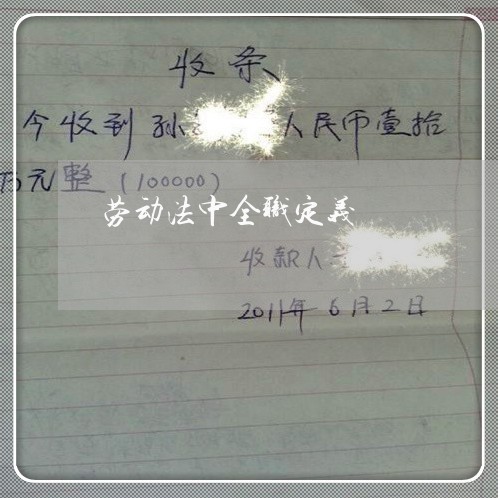 收条
今收到孙 人民币壹拾
万元整（100000）
劳动法中全职定义
收款人
2011年6月2日